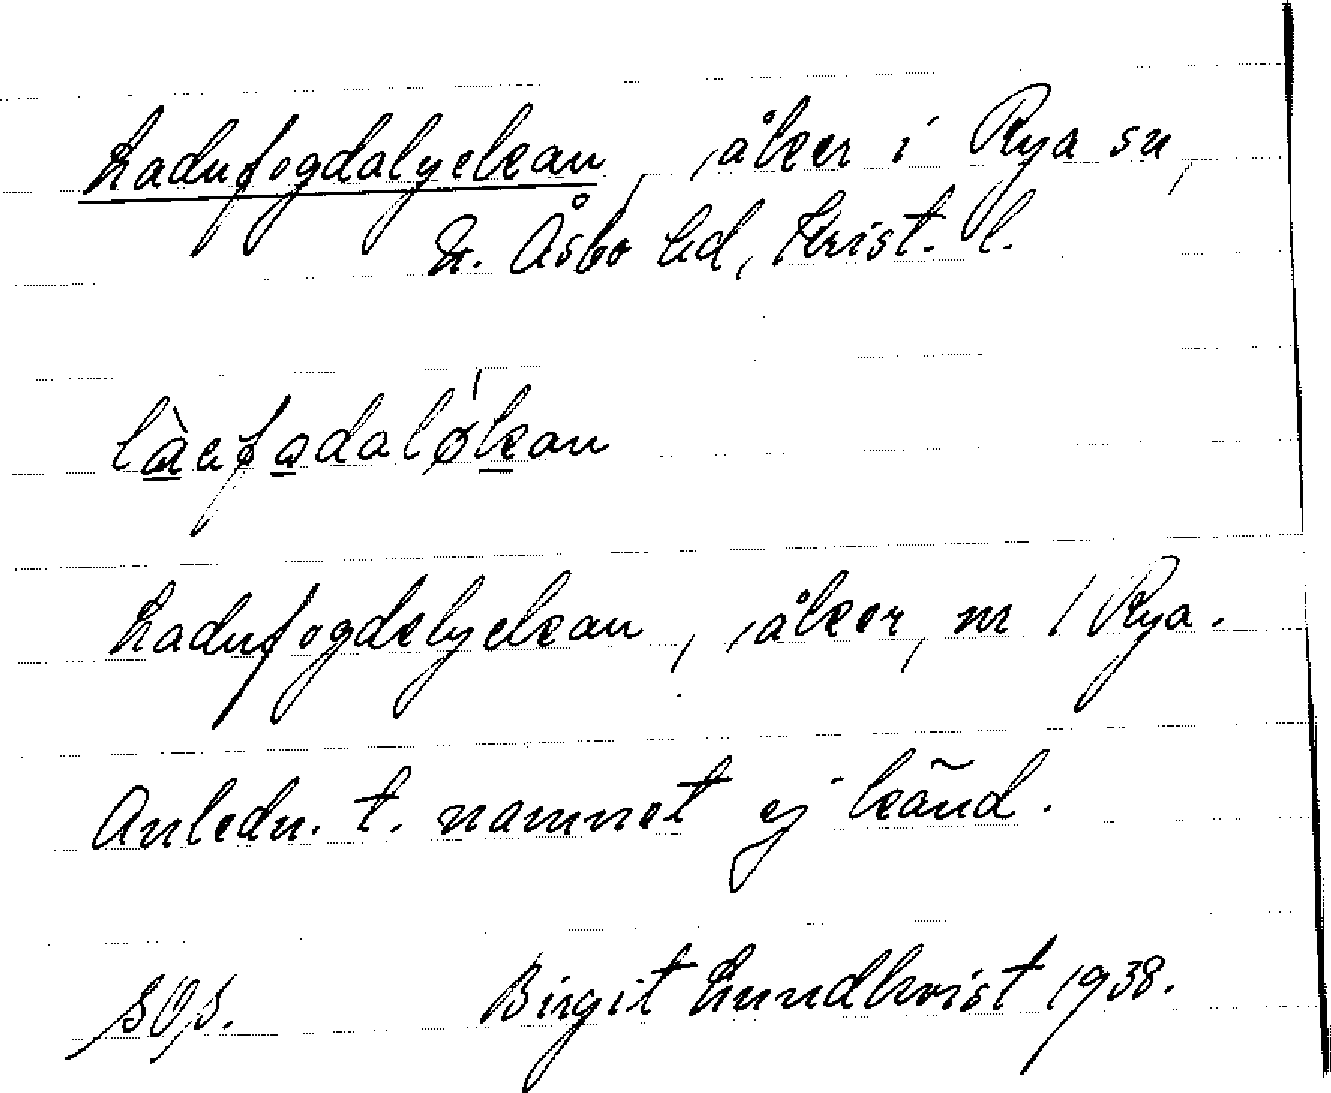 Ladufogdalyckan, åker i Rya sn,
N. Åsbo hd, Krist. l.
làefadaløkan
Ladufogdelyckan, åker, nr 1 Rya.
Anledn. t. namnet ej känd.
SOS. Birgit Lundkvist 1938.